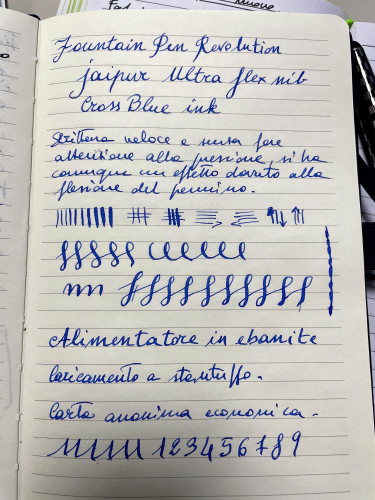 Fountain Pen Revolution
Jaipur Ultra flex nib
Cross Blue ink
Scrittura veloce e senza fare
attenzione alla pressione, si ha
comunque un effetto dovuto alla
flessione del pennino.
Alimentatore in ebanite
Caricamento a stantuffo.
Carta anonima economica.
123456789